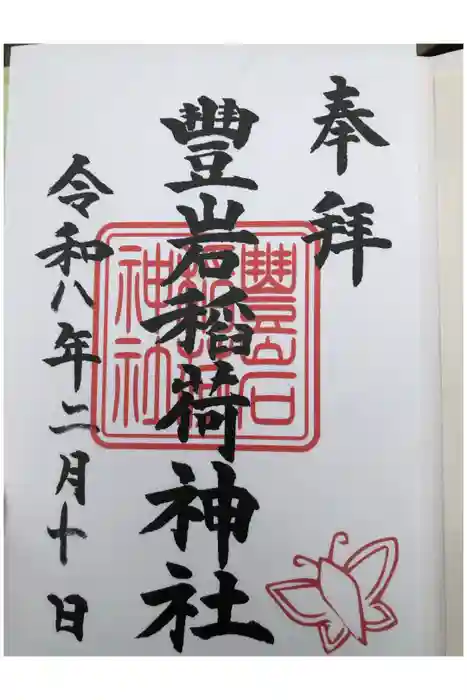 奉拝
豐岩稲荷神社
令和八年二月十日
豐岩稲荷神社